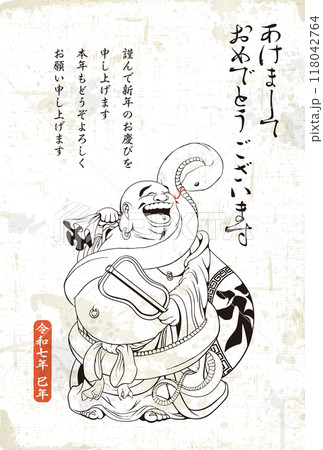 あけまして
おめでとうございます
謹んで新年のお慶びを
申し上げます
本年もどうぞよろしく
お願い申し上げます
令和七年 巳年
118042764